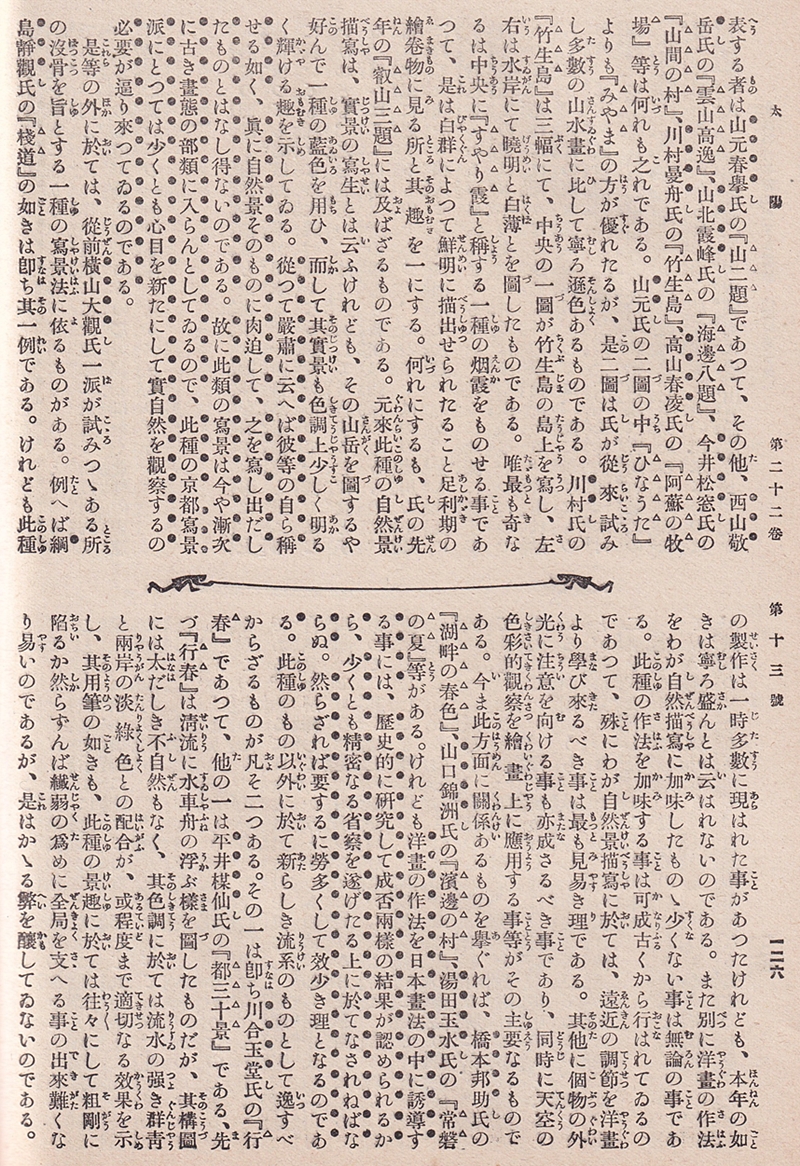 太陽 第二十二卷 第十三號 一二六
表する者は山元春擧氏の『山二題』であつて、その他、西山敬
岳氏の『雲山高逸』、山北霞峰氏の『海邊八題』、今井松窓氏の
『山間の村』、川村曼舟氏の『竹生島』、高山春凌氏の『阿蘇の牧
場』等は何れも之れである。山元氏の二圖の中『ひなうた』
よりも『みやま』の方が優れたるが、是二圖は氏が從來試み
し多數の山水畫に比して寧ろ遜色あるものである。川村氏の
『竹生島』は三幅にて、中央の一圖が竹生島の島上を寫し、左
右は水岸にて曉明と白薄とを圖したものである。唯最も奇な
るは中央に『すやり霞』と稱する一種の烟霞をものせる事であ
つて、是は白群によつて鮮明に描出せられたること足利期の
繪卷物に見る所と其趣を一にする。何れにするも、氏の先
年の『叡山三題』には及ばざるものである。元來此種の自然景
描寫は、實景の寫生とは云ふけれども、その山岳を圖するや
好んで一種の藍色を用ひ、而して其實景も色調上少しく明る
く輝ける趣を示してゐる。從つて嚴肅に云へば彼等の自ら稱
せる如く、眞に自然景そのものに肉迫して、之を寫し出だし
たものとはなし得ないのである。故に此類の寫景は今や漸次
に古き畫態の部類に入らんとしてゐるので、此種の京都寫景
派にとつては少くとも心目を新たにして實自然を觀察するの
必要が逼り來つてゐるのである。
是等の外に於ては、從前橫山大觀氏一派が試みつゝある所
の沒骨を旨とする一種の寫景法に依るものがある。例へば綱
島靜觀氏の『棧道』の如きは卽ち其一例である。けれども此種
の製作は一時多數に現はれた事があつたけれども、本年の如
きは寧ろ盛んとは云はれないのである。また別に洋畫の作法
をわが自然描寫に加味したものゝ少くない事は無論の事であ
る。此種の作法を加味する事は可成古くから行はれてゐるの
であつて、殊にわが自然景描寫に於ては、遠近の調節を洋畫
より學び來るべき事は最も見易き理である。其他に個物の外
光に注意を向ける事も亦成さるべき事であり、同時に天空の
色彩的觀察を繪畫上に應用する事等がその主要なるもので
ある。今ま此方面に關係あるものを擧ぐれば、橋本邦助氏の
『湖畔の春色』、山口錦洲氏の『濱邊の村』、湯田玉水氏の『常磐
の夏』等がある。けれども洋畫の作法を日本畫法の中に誘導す
る事には、歷史的に研究して成否兩樣の結果が認められるか
ら、少くとも精密なる省察を遂げたる上に於てなされねばな
らぬ。然らざれば要するに勞多くして效少き理となるのであ
る。此種のもの以外に於て新らしき流系のものとして逸すべ
からざるものが凡そ二つある。その一は卽ち川合玉堂氏の『行
春』であつて、他の一は平井楳仙氏の『都三十景』である、先
づ『行春』は淸流に水車舟の浮ぶ樣を圖したものだが、其構圖
には太だしき不自然もなく、其色調に於ては流水の强き群靑
と兩岸の淡綠色との配合が、或程度まで適切なる效果を示
し、其用筆の如きも、此種の景趣に於ては往々にして粗剛に
陷るか然らずんば纎弱の爲めに全局を支へる事の出來難くな
り易いのであるが、是はかゝる弊を釀してゐないのである。